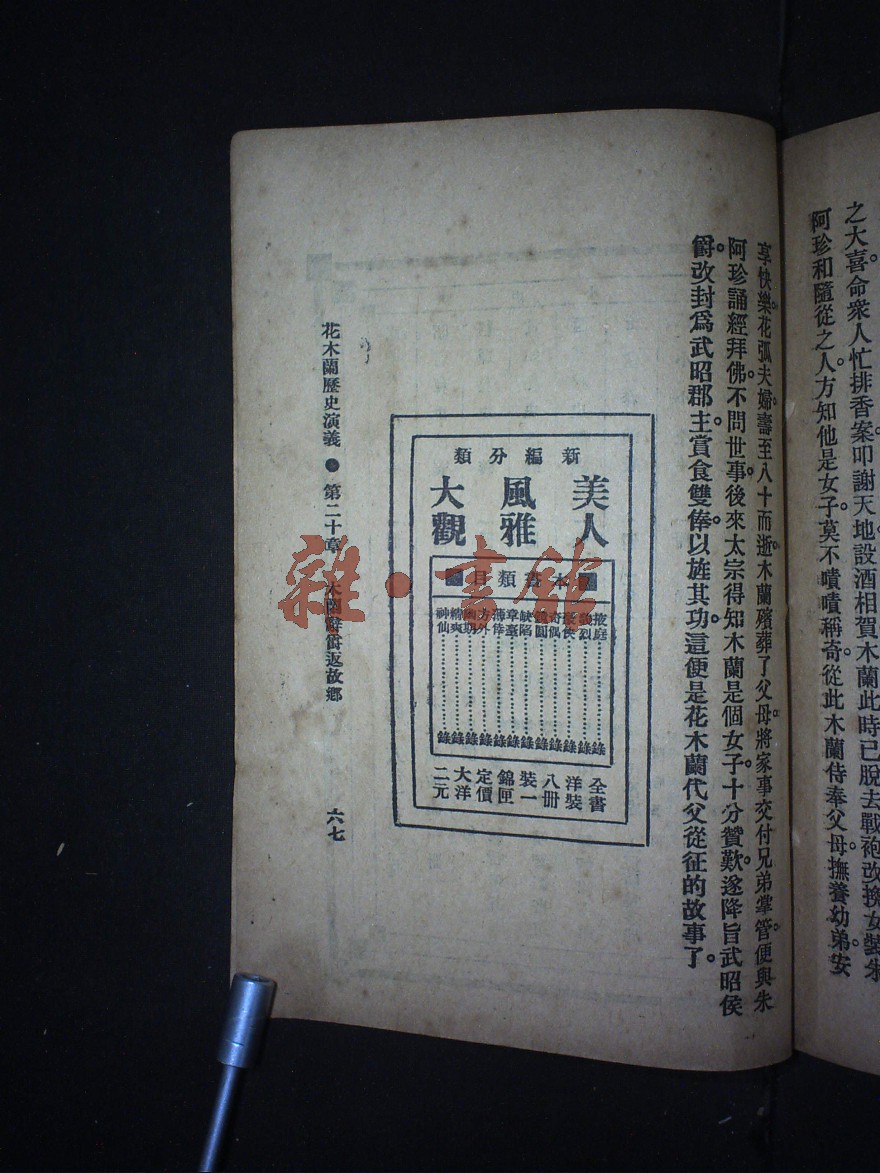 之大喜。命衆人忙排香案叩謝天地。設酒相賀。木蘭此時已脫去戰袍。改換女裝。朱
阿珍和隨從之人。方知他是女子。莫不嘖嘖稱奇。從此木蘭侍奉父母。撫養幼弟。安
享快樂。花弧夫婦。壽至八十而逝。木蘭殯葬了父母。將家事交付兄弟掌管。便與朱
阿珍誦經拜佛。不問世事。後來太宗得知木蘭是個女子。十分贊歎。遂降旨武昭侯
爵。改封爲武昭郡主。賞食雙俸。以旌其功。這便是花木蘭代父從征的故事了。
新編分類
美人
風雅
大觀
本書類目
掖庭⋯⋯錄
烈⋯⋯錄
俠⋯⋯錄
奇偶⋯⋯錄
圓⋯⋯錄
缺陷⋯⋯錄
章臺⋯⋯錄
薄倖⋯⋯錄
方外⋯⋯錄
幽期⋯⋯錄
精爽⋯⋯錄
神仙⋯⋯錄
全書
洋裝
八冊
裝一
錦匣
定價
大洋
二元
花木蘭歷史演義 ● 第二十章 木蘭辭爵返故鄉 六七
雜·書館